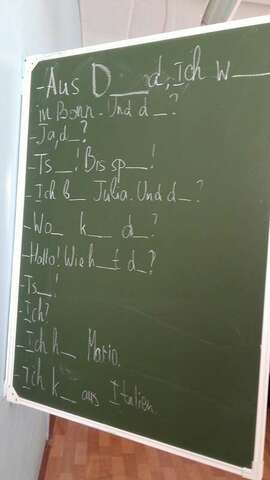 - Aus D___d, Ich w___
in Bonn. Und d_?
- Ja, d_?
- Ts_! Bis sp__!
- Ich b_ Julia. Und d_?
- Wo_ k__ d_?
- Hallo! Wie h_t d_?
- Ts_!
- Ich?
- Ich h_ Mario.
- Ich k_ aus Italien.